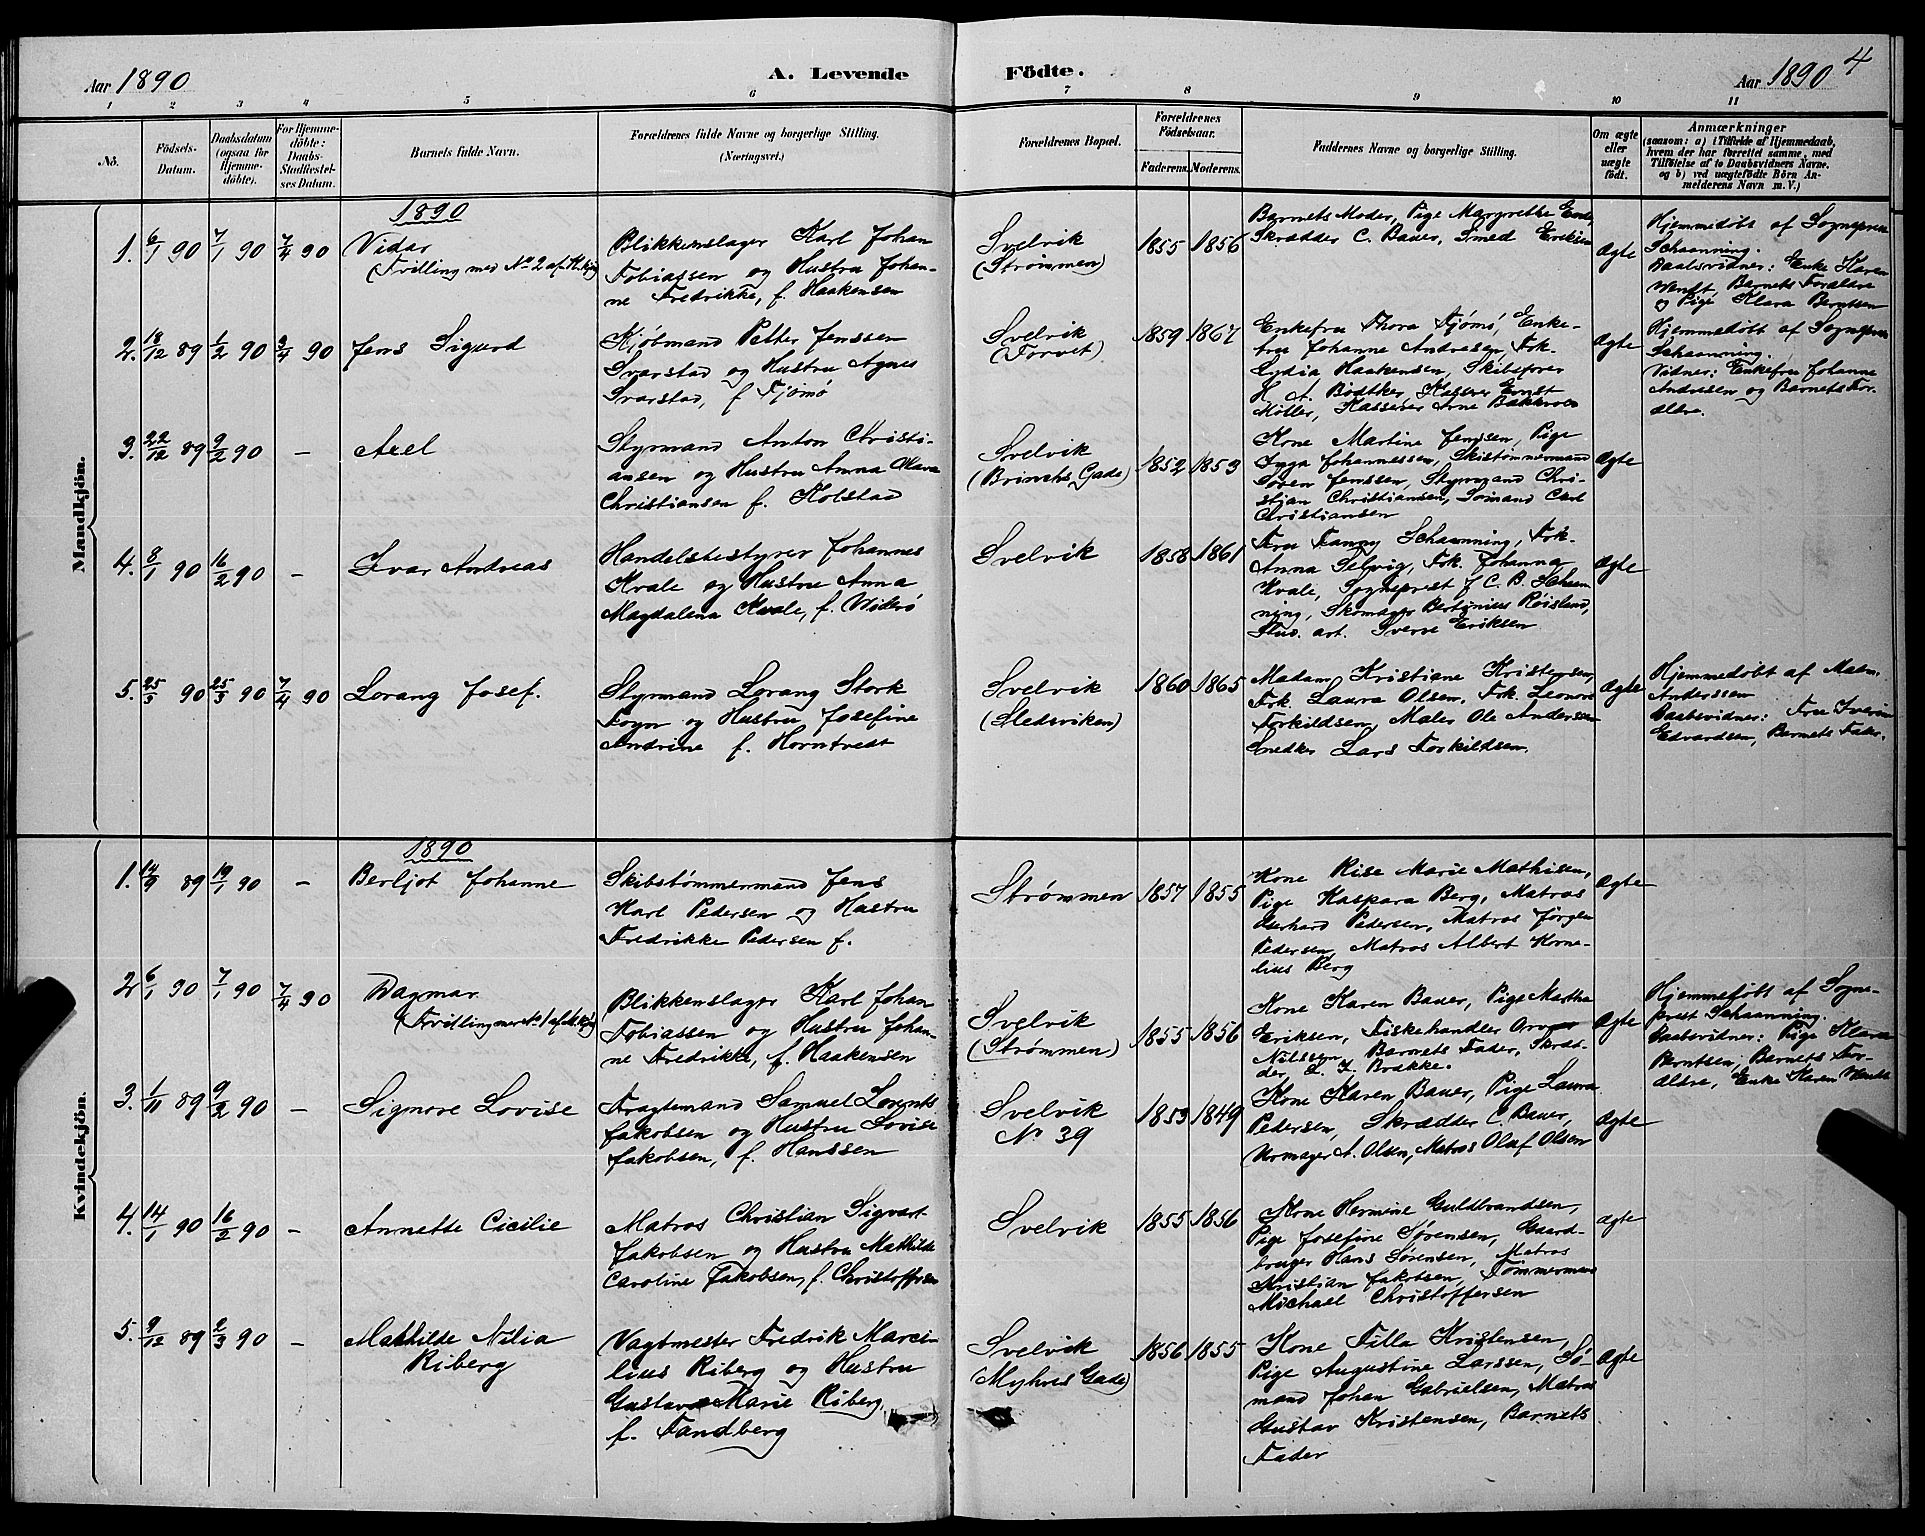 Aar 1890
A. Levende Födte.
Aar 1890
4
1 2 3 4 5 6 7 8 9 10 11
No.
Födsels-Datum.
Daabsdatum (ogsaa for Hjemme-döbte).
For Hjemme-döbte: Daabs-Stadfæstel-ses Datum.
Barnets fulde Navn.
Forældrenes fulde Navne og borgerlige Stilling.
(Næringsvei.)
Forældrenes Bopæl.
Forældrenes Födselsaar.
Faderens. Moderens.
Faddernes Navne og borgerlige Stilling.
Om ægte eller uægte födt.
Anmærkninger
(saasom: a) i Tilfælde af Hjemmedaab,
hvem der har forrettet samme, med
Tilföielse af to Daabsvidners Navne.
og b) ved uægtefödte Börn An-
melderens Navn m. V.)
Mandkjön.
1890
1. 6/1 90 7/1 90 7/4 90 Vidar
(Tvilling med No 2 af Kvkj)
Blikkenslager Karl Johan
Tobiassen og Hustru Johan-
ne Fredrikke, f. Haakensen
Svelvik
(Strømmen)
1855 1856
Barnets Moder, Pige Margrethe
Skrædder C. Bauer, Smed Eriksen
Ægte
Hjemmedøbt af Sognepræst
Schaanning.
Daabsvidner: Enke Karen
Wendt, Barnets Forældre
og Pige Klara Berntsen
2. 18/12 89 1/2 90 2/4 90 Jens Sigurd
Kjøbmand Petter Jenssen
Svarstad og Hustru Agnes
Svarstad, f. Tjømø
Svelvik
(Torvet)
1859 1867
Enkefru Thora Tjømø, Enke-
fru Johanne Andresen, Frk.
Lydia Haakensen, Skibsfører
H. A. Bødtker, Kasserer Ernst
Møller, Kasserer Arne Bakkeroe
Ægte
Hjemmedøbt af Sognepræst
Schaanning.
Vidner: Enkefru Johanne
Andresen og Barnets For-
ældre.
3. 22/12 89 9/2 90 – Axel
Styrmand Anton Christi-
ansen og Hustru Anna Mara
Christiansen f. Kolstad
Svelvik
(Brinchs Gade)
1852 1853
Kone Martine Jenssen, Pige
Inga Johannessen, Skibstømmermand
Søren Jenssen, Styrmand Chri-
stian Christiansen, Sømand Carl
Christiansen
Ægte
4. 8/1 90 16/2 90 – Ivar Andreas
Handelsbestyrer Johannes
Kvale og Hustru Anna
Magdalena Kvale, f. Widerø
Svelvik
1858 1861
Fru Fanny Schaanning, Frk.
Anna Selvig, Frk. Johanna
Kvale, Sogneprest J. C. B. Schaan-
ning, Skomager Bertinius Røisland,
Stud. art. Sverre Eriksen
Ægte
5. 25/3 90 25/3 90 7/4 90 Lorang Josef.
Styrmand Lorang Stork
Foyn og Hustru Josefine
Andrine f. Horntvedt
Svelvik
(Sledsviken)
1860 1865
Madam Kristiane Kristensen,
Frk. Laura Olsen, Frk. Leonore
Torkildsen, Maler Ole Anderssen
Snedker Lars Torkildsen.
Ægte
Hjemmedøbt af Madm.
Anderssen
Daabsvidner: Fru Iverine
Edvardsen, Barnets Fader.
Kvindekjön.
1890
1. 14/9 89 19/1 90 – Berljot Johanne
Skibstømmermand Jens
Karl Pedersen og Hustru
Fredrikke Pedersen f.
Strømmen
1857 1855
Kone Rise Marie Mathisen,
Pige Kaspara Berg, Matros
Gerhard Pedersen, Matros Jørgen
Pedersen, Matros Albert Korne-
lius Berg
Ægte
2. 6/1 90 7/1 90 7/4 90 Dagmar
(Tvilling med No 1 af Mkj)
Blikkenslager Karl Johan
Tobiassen og Hustru Johan-
ne Fredrikke, f. Haakensen
Svelvik
(Strømmen)
1855 1856
Kone Karen Bauer, Pige Martha
Eriksen, Fiskehandler
Nilssen, Barnets Fader, Skræd-
der L. J. Brække.
Ægte
Hjemmeføbt af Sogne-
prest Schaanning.
Daabsvidner: Pige Klara
Berntsen, Barnets For-
ældre, Enke Karen Wendt
3. 1/11 89 9/2 90 – Signore Lovise
Fragtemand Samuel Lorents
Jakobsen og Hustru Lovise
Jakobsen, f. Hanssen
Svelvik
No 39
1853 1849
Kone Karen Bauer, Pige Laura
Pedersen, Skrædder C. Bauer,
Urmager A. Olsen, Matros Oluf Olsen
Ægte
4. 14/1 90 16/2 90 – Annette Cicilie
Matros Christian Sigvart
Jakobsen og Hustru Mathilde
Caroline Jakobsen, f. Christoffersen
Svelvik
1855 1856
Kone Hermine Guldbrandsen,
Pige Josefine Sørensen, Gaard-
bruger Hans Sørensen, Matros
Kristian Jakobsen, Tømmermand
Michael Christoffersen
Ægte
5. 9/12 89 2/3 90 – Mathilde Nilia
Riberg
Vagtmester Fredrik Marci-
lius Riberg og Hustru
Gustava Marie Riberg,
f. Tandberg
Svelvik
(Myhres Gade)
1856 1855
Kone Tilla Kristensen,
Pige Augustine Larssen, Sø-
mand Johan Gabrielsen, Matros
Gustav Kristensen, Barnets
Fader
Ægte